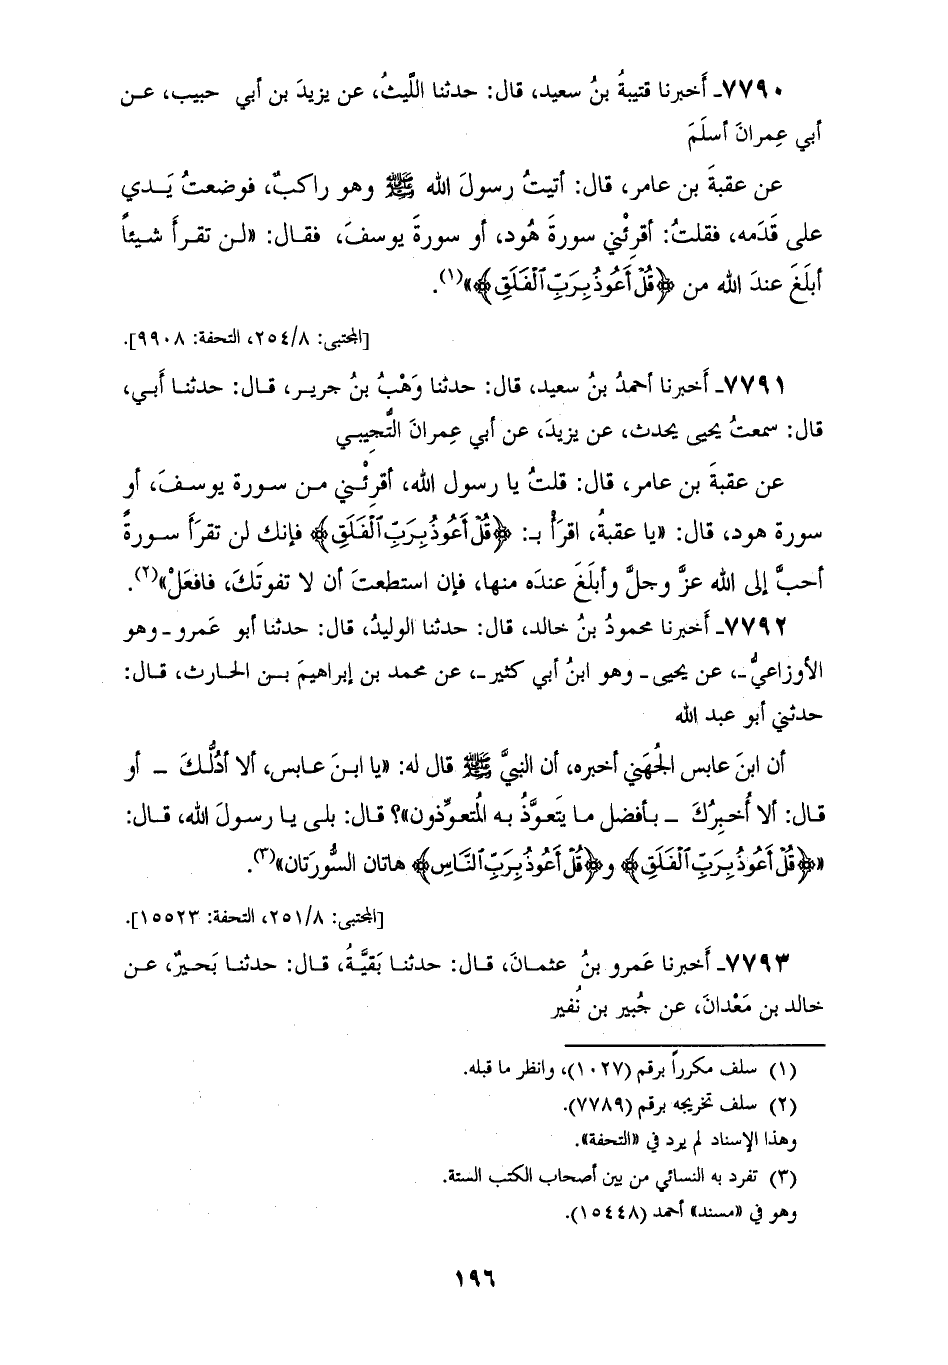 ٧٧٩٠ـ أَخبرنا قتيبةُ بنُ سعيد، قال: حدثنا اللَّيثُ، عن يزيدَ بن أبي حبيب، عـن
أبي عِمرانَ أسلَمَ
عن عقبةَ بن عامر، قال: أتيتُ رسولَ الله ﷺ وهو راكبٌ، فوضعتُ يَـدي
على قَدَمه، فقلتُ: أقرِئْني سورةَ هُود، أو سورةَ يوسفَ، فقـال: «لـن تقـرأَ شـيئاً
أبلَغَ عندَ الله من ﴿قُلْ أَعُوذُ بِرَبِّ ٱلْفَلَقِ﴾»(١).
[المجتبى: ٢٥٤/٨، التحفة: ٩٩٠٨].
٧٧٩١ـ أَخبرنا أحمدُ بنُ سعيد، قال: حدثنا وَهْبُ بنُ جريـر، قـال: حدثنـا أبي،
قال: سمعتُ يحيى يحدث، عن يزيدَ، عن أبي عِمرانَ التُّجِيبي
عن عقبةَ بن عامر، قال: قلتُ يا رسول الله، أقرِئْـني مـن سـورة يوسـفَ، أو
سورة هود، قال: «يا عقبةُ، اقرَأْ بـ: ﴿قُلْ أَعُوذُ بِرَبِّ ٱلْفَلَقِ﴾ فإنك لن تقرَأَ سـورةً
أحبَّ إلى الله عزَّ وجلَّ وأبلَغَ عندَه منها، فإن استطعتَ أن لا تفوتَكَ، فافعَلْ»(٢).
٧٧٩٢ـ أَخبرنا محمودُ بنُ خالد، قال: حدثنا الوليدُ، قال: حدثنا أبو عَمرو ـ وهو
الأوزاعيُّ ـ، عن يحيى ـ وهو ابنُ أبي كثير ـ، عن محمد بن إبراهيمَ بـن الحـارث، قـال:
حدثني أبو عبد الله
أن ابنَ عابس الجُهَني أخبره، أن النبيَّ ﷺ قال له: «يا ابـنَ عـابس، ألا أدُلُّـكَ ـ أو
قـال: ألا أُخـبِرُكَ ـ بـأفضل مـا يَتعوَّذُ بـه المُتعوِّذون»؟ قـال: بلـى يـا رسـولَ الله، قـال:
«﴿قُلْ أَعُوذُ بِرَبِّ ٱلْفَلَقِ﴾ و﴿قُلْ أَعُوذُ بِرَبِّ ٱلنَّاسِ﴾ هاتان السُّورَتان»(٣).
[المجتبى: ٢٥١/٨، التحفة: ١٥٥٢٣].
٧٧٩٣ـ أَخبرنا عَمرو بنُ عثمـانَ، قـال: حدثنـا بَقيَّـةُ، قـال: حدثنـا بَحـيرٌ، عـن
خالد بن مَعْدانَ، عن جُبير بن نُفير
(١) سلف مكرراً برقم (١٠٢٧)، وانظر ما قبله.
(٢) سلف تخريجه برقم (٧٧٨٩).
وهذا الإسناد لم يرد في «التحفة».
(٣) تفرد به النسائي من بين أصحاب الكتب الستة.
وهو في «مسند» أحمد (١٥٤٤٨).
١٩٦